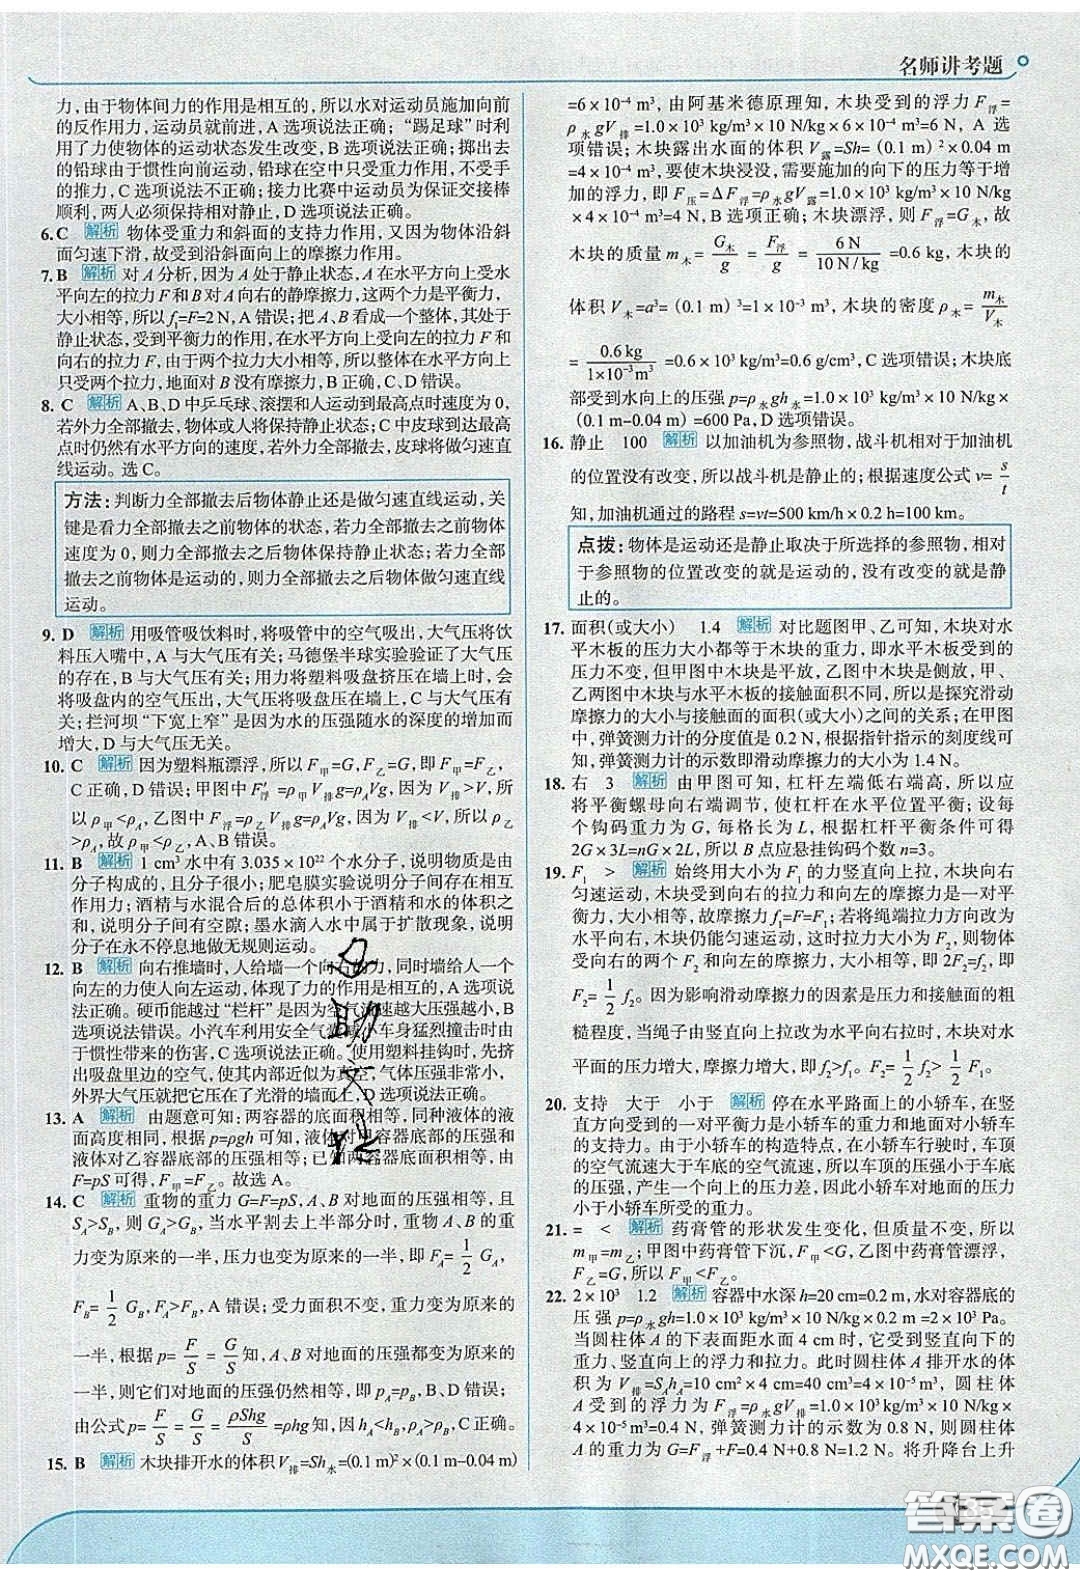 名师讲考题
力，由于物体间力的作用是相互的，所以水对运动员施加向前
的反作用力，运动员就前进，A 选项说法正确；“踢足球”时利
用了力使物体的运动状态发生改变，B 选项说法正确；掷出去
的铅球由于惯性向前运动，铅球在空中只受重力作用，不受手
的推力，C 选项说法不正确；接力比赛中运动员为保证交接棒
顺利，两人必须保持相对静止，D 选项说法正确。
6. C 解析 物体受重力和斜面的支持力作用，又因为物体沿斜
面匀速下滑，故受到沿斜面向上的摩擦力作用。
7. B 解析 对 A 分析，因为 A 处于静止状态，A 在水平方向上受水
平向左的拉力 F 和 B 对 A 向右的静摩擦力，这两个力是平衡力，
大小相等，所以 f₁=F=2 N，A 错误；把 A、B 看成一个整体，其处于
静止状态，受到平衡力的作用，在水平方向上受向左的拉力 F 和
向右的拉力 F，由于两个拉力大小相等，所以整体在水平方向上
只受两个拉力，地面对 B 没有摩擦力，B 正确，C、D 错误。
8. C 解析 A、B、D 中乒乓球、滚摆和人运动到最高点时速度为 0，
若外力全部撤去，物体或人将保持静止；C 中皮球到达最高点
时仍然有水平方向的速度，若外力全部撤去，皮球将做匀速直
线运动。选 C。
方法：判断力全部撤去后物体静止还是做匀速直线运动，关
键是看力全部撤去之前物体的状态，若力全部撤去之前物体
速度为 0，则力全部撤去之后物体保持静止状态；若力全部
撤去之前物体是运动的，则力全部撤去之后物体做匀速直线
运动。
9. D 解析 用吸管吸饮料时，将吸管中的空气吸出，大气压将饮
料压入嘴中，A 与大气压有关；马德堡半球实验验证了大气压
的存在，B 与大气压有关；用力将塑料吸盘挤压在墙上时，会
将吸盘内的空气压出，大气压将吸盘压在墙上，C 与大气压有
关；拦河坝“下宽上窄”是因为水的压强随水的深度的增加而
增大，D 与大气压无关。
10. C 解析 因为塑料瓶漂浮，所以 F甲=G，F乙=G，即 F甲=F乙，
C 正确，D 错误；甲图中 F′浮 =ρ甲 V排g=ρAVg，因为 V排>V，所
以 ρ甲<ρA，乙图中 F浮=ρ乙V排g=ρAVg，因为 V排<V，所以 ρ乙
>ρA，故 ρ甲<ρ乙，A、B 错误。
11. B 解析 1 cm³ 水中有 3.035 × 10²² 个水分子，说明物质是由
分子构成的，且分子很小；肥皂膜实验说明分子间存在相互
作用力；酒精与水混合后的总体积小于酒精和水的体积之
和，说明分子间有空隙；墨水滴入水中属于扩散现象，说明
分子在永不停息地做无规则运动。
12. B 解析 向右推墙时，人给墙一个向右的力，同时墙给人一个
向左的力使人向左运动，体现了力的作用是相互的，A 选项说法
正确。硬币能越过“栏杆”是因为空气流速越大压强越小，B
选项说法错误。小汽车利用安全气囊减小车身猛烈撞击时由
于惯性带来的伤害，C 选项说法正确。使用塑料挂钩时，先挤
出吸盘里边的空气，使其内部近似为真空，气体压强非常小，
外界大气压就把它压在了光滑的墙面上，D 选项说法正确。
13. A 解析 由题意可知：两容器的底面积相等，同种液体的液
面高度相同，根据 p=ρgh 可知，液体对甲容器底部的压强和
液体对乙容器底部的压强相等；已知两容器底面积相等，由
F=pS 可得，F甲=F乙。故选 A。
14. C 解析 重物的重力 G=F=pS，A、B 对地面的压强相等，且
SA>SB，则 GA>GB，当水平割去上半部分时，重物 A、B 的重
力变为原来的一半，压力也变为原来的一半，即 FA=1/2 GA，
FB=1/2 GB，FA>FB，A 错误；受力面积不变，重力变为原来的
一半，根据 p=F/S=G/S知，A、B 对地面的压强都变为原来的
一半，则它们对地面的压强仍然相等，即 pA=pB，B、D 错误；
由公式 p=F/S=G/S=ρShg/S=ρhg知，因 hA<hB，ρA>ρB，C 正确。
15. B 解析 木块排开水的体积 V排=Sh水=(0.1 m)²×(0.1 m-0.04 m)
=6×10⁻⁴ m³，由阿基米德原理知，木块受到的浮力 F浮=
ρ水gV排=1.0×10³ kg/m³×10 N/kg×6×10⁻⁴ m³=6 N，A 选
项错误；木块露出水面的体积 V露=Sh=(0.1 m)²×0.04 m
=4×10⁻⁴ m³，要使木块浸没，需要施加的向下的压力等于增
加的浮力，即 F压=ΔF浮=ρ水gV露=1.0×10³ kg/m³×10 N/kg
×4×10⁻⁴ m³=4 N，B 选项正确；木块漂浮，则 F浮=G木，故
木块的质量 m木=G木/g=F浮/g=6 N/10 N/kg=0.6 kg，木块的
体积 V木=a³=(0.1 m)³=1×10⁻³ m³，木块的密度 ρ木=m木/V木
=0.6 kg/1×10⁻³m³=0.6×10³ kg/m³=0.6 g/cm³，C 选项错误；木块底
部受到水向上的压强 p=ρ水gh浸=1.0×10³ kg/m³×10 N/kg×
(0.1 m-0.04 m)=600 Pa，D 选项错误。
16. 静止 100 解析 以加油机为参照物，战斗机相对于加油机
的位置没有改变，所以战斗机是静止的；根据速度公式 v=s/t
知，加油机通过的路程 s=vt=500 km/h×0.2 h=100 km。
点拨：物体是运动还是静止取决于所选择的参照物，相对
于参照物的位置改变的就是运动的，没有改变的就是静
止的。
17. 面积(或大小) 1.4 解析 对比题图甲、乙可知，木块对水
平木板的压力大小都等于木块的重力，即水平木板受到的
压力不变，但甲图中木块是平放，乙图中木块是侧放，甲、
乙两图中木块与水平木板的接触面积不同，所以是探究滑动
摩擦力的大小与接触面的面积(或大小)之间的关系；在甲图
中，弹簧测力计的分度值是 0.2 N，根据指针指示的刻度线可
知，弹簧测力计的示数即滑动摩擦力的大小为 1.4 N。
18. 右 3 解析 由甲图可知，杠杆左端低右端高，所以应
将平衡螺母向右端调节，使杠杆在水平位置平衡；设每
个钩码重力为 G，每格长为 L，根据杠杆平衡条件可得
2G×3L=nG×2L，所以 B 点应悬挂钩码个数 n=3。
19. F₁ > 解析 始终用大小为 F₁ 的力竖直向上拉，木块向右
匀速运动，木块受到向右的拉力和向左的摩擦力是一对平
衡力，大小相等，故摩擦力 f₁=F=F₁；若将绳端拉力方向改为
水平向右，木块仍能匀速运动，这时拉力大小为 F₂，则物体
受向右的两个 F₂ 和向左的摩擦力，大小相等，即 2F₂=f₂，
F₂=1/2 f₂。因为影响滑动摩擦力的因素是压力和接触面的粗
糙程度，当绳子由竖直向上拉改为水平向右拉时，木块对水
平面的压力增大，摩擦力增大，即 f₂>f₁，所以 F₂>1/2 F₁。
20. 支持 大于 小于 解析 停在水平路面上的小轿车，在竖
直方向受到的一对平衡力是小轿车的重力和地面对小轿车
的支持力。由于小轿车的构造特点，在小轿车行驶时，车顶
的空气流速大于车底的空气流速，所以车顶的压强小于车底
的压强，产生一个向上的压力差，因此小轿车对地面的压力
小于小轿车所受的重力。
21. = < 解析 药膏管的形状发生变化，但质量不变，所以
m甲=m乙；甲图中药膏管下沉，F甲<G，乙图中药膏管漂浮，
F乙=G，所以 F甲<F乙。
22. 2×10³ 1.2 解析 容器中水深 h=20 cm=0.2 m，水对容器底的
压强 p=ρ水gh=1.0×10³ kg/m³×10 N/kg×0.2 m =2×10³ Pa。
当圆柱体 A 的下表面距水面 4 cm 时，它受到竖直向下的
重力、竖直向上的浮力和拉力。此时圆柱体 A 排开水的体
积为 V排=SAhA=10 cm²×4 cm=40 cm³=4×10⁻⁵ m³，圆柱体
A 受到的浮力 F浮=ρ水gV排=1.0×10³ kg/m³×10 N/kg×
4×10⁻⁵ m³=0.4 N，弹簧测力计的示数为 0.8 N，则圆柱体
A 的重力为 G=F浮+F=0.4 N+0.8 N=1.2 N。将升降台上升
答案圈
MXQE.COM